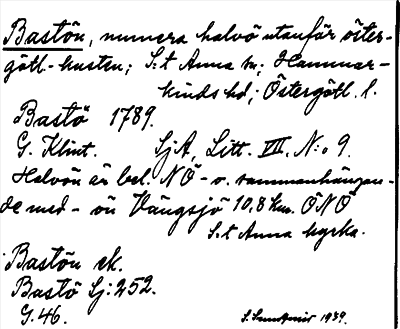 Bastön, numera halvö utanför öster-
götl-kusten; S:t Anna sn; Hammar-
kinds hd; Östergötl. l.
Bastö 1789.
G. Klint. SjA, Litt. VII, N:o 9.
Halvön är bel. NÖ- o. sammanhängan-
de med - ön Vängsjö 10,8 km. ÖNÖ
S:t Anna kyrka.
Bastön ek.
Bastö Sj: 252.
G. 46. 1939.